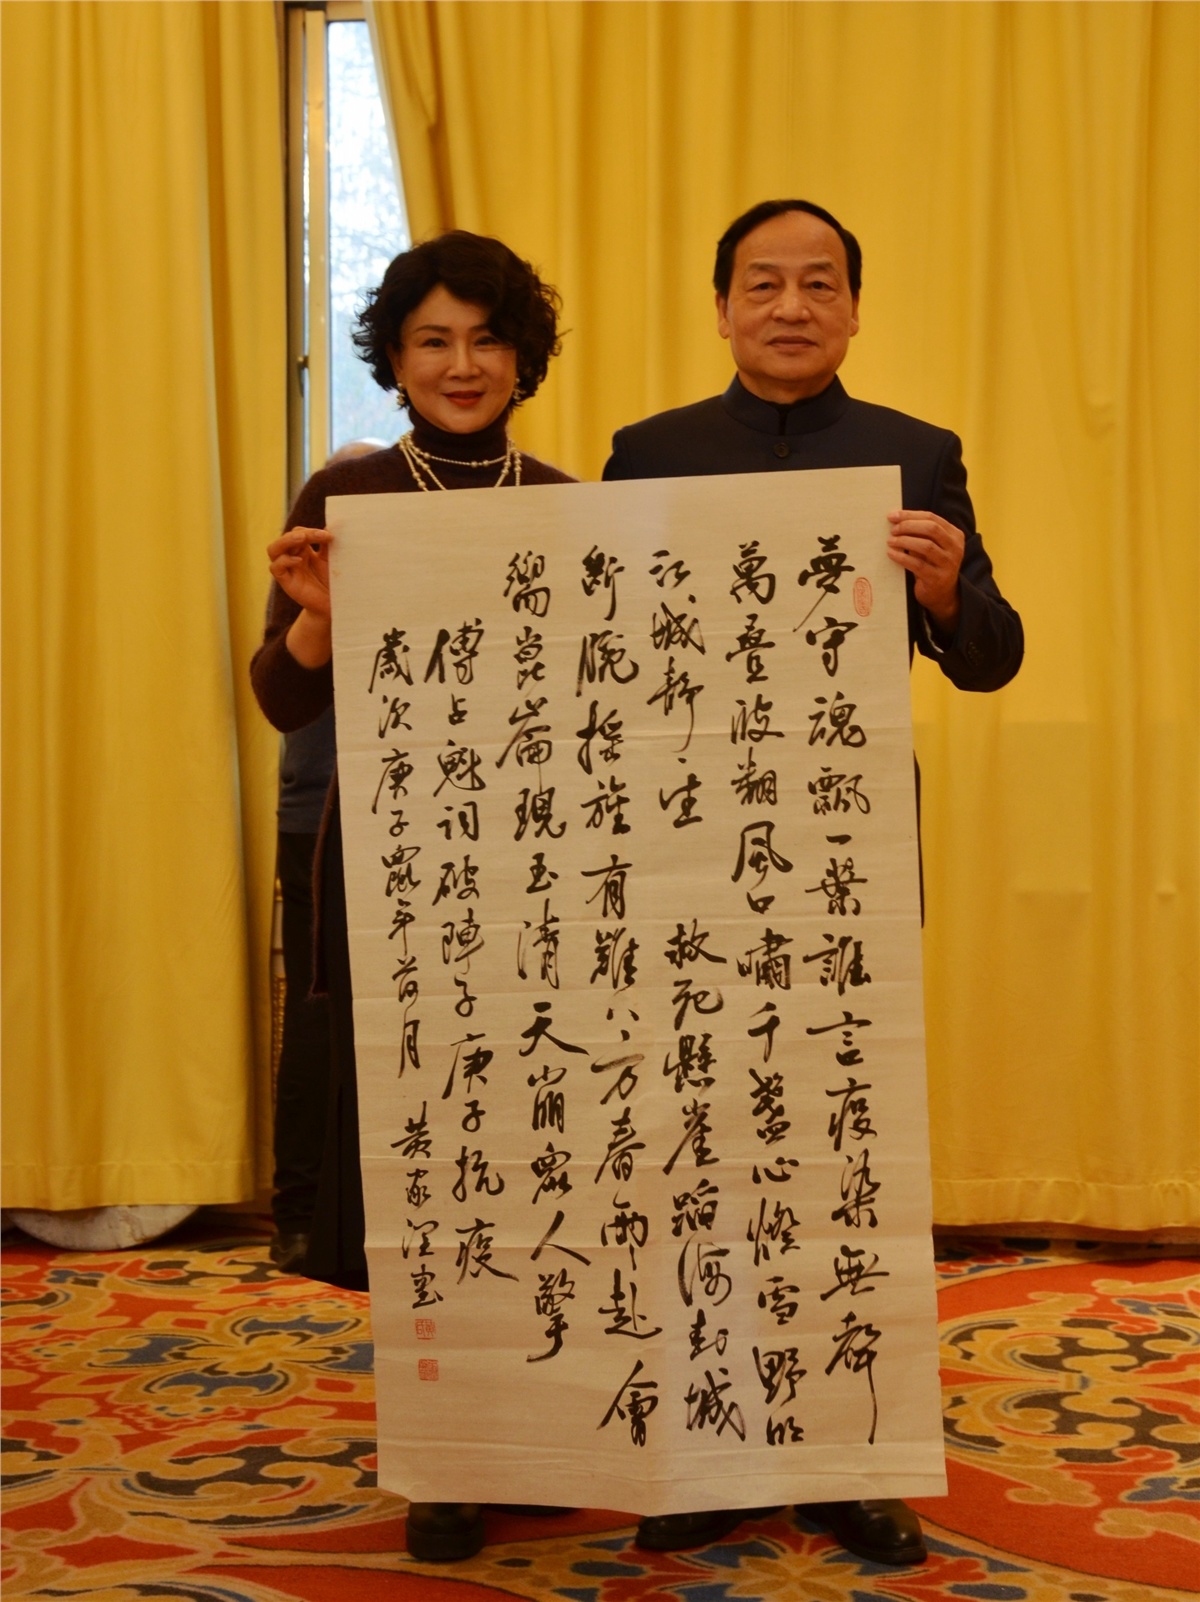 夢守魂飄一葉誰言疫染無聲
萬疊波翻風口嘯千盞心燈雪野明
江城靜、生 救死懸崖蹈海封城
斷腕搖旌有難八方春雨赴會
嚮崑崙現玉清天崩眾人擎
傅占魁詞破陣子庚子抗疫
歲次庚子鼠年荷月 黃家